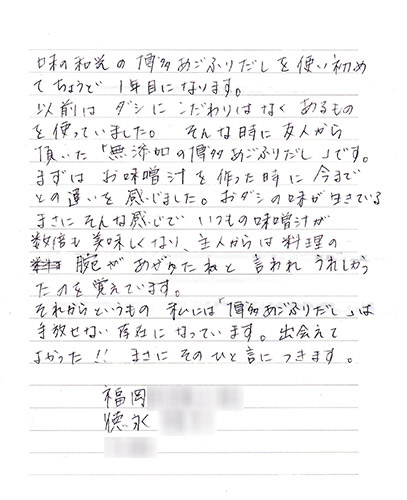 味の和光の博多あごふりだしを使い初め
てちょうど1年目になります。
以前は ダシに こだわりはなく あるもの
を使っていました。 そんな時に友人から
頂いた「無添加の博多あごふりだし」です。
まずは お味噌汁を作った時に 今まで
との違いを感じました。おダシの味が生きてる
まさにそんな感じで いつもの味噌汁が
数倍も美味しくなり、主人からは料理の
腕があがったねと 言われ うれしかっ
たのを覚えています。
それからというもの 私には「博多あごふりだし」は
手放せない存在になっています。出会えて
よかった!! まさに そのひと言につきます。
福岡
徳永